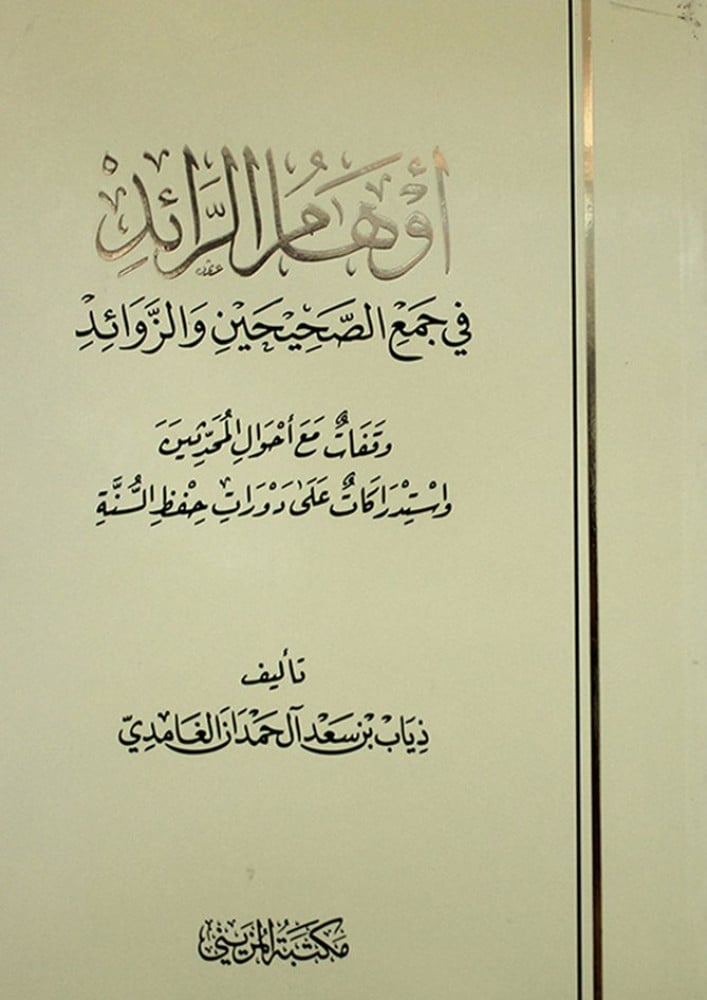 أَوْهَامُ الرَّائِدِ
فِي جَمْعِ الصَّحِيْحَيْنِ وَالزَّوَائِدِ
وَقَفَاتٌ مَعَ أَحْوَالِ المُحَدِّثِيْنَ
وَاسْتِدْرَاكَاتٌ عَلَى دَوْرَاتِ حِفْظِ السُّنَّةِ
تأليف
ذِيَاب بْن سَعْد آل حَمْدَان الغَامِدِيّ
مكتبة المزيني